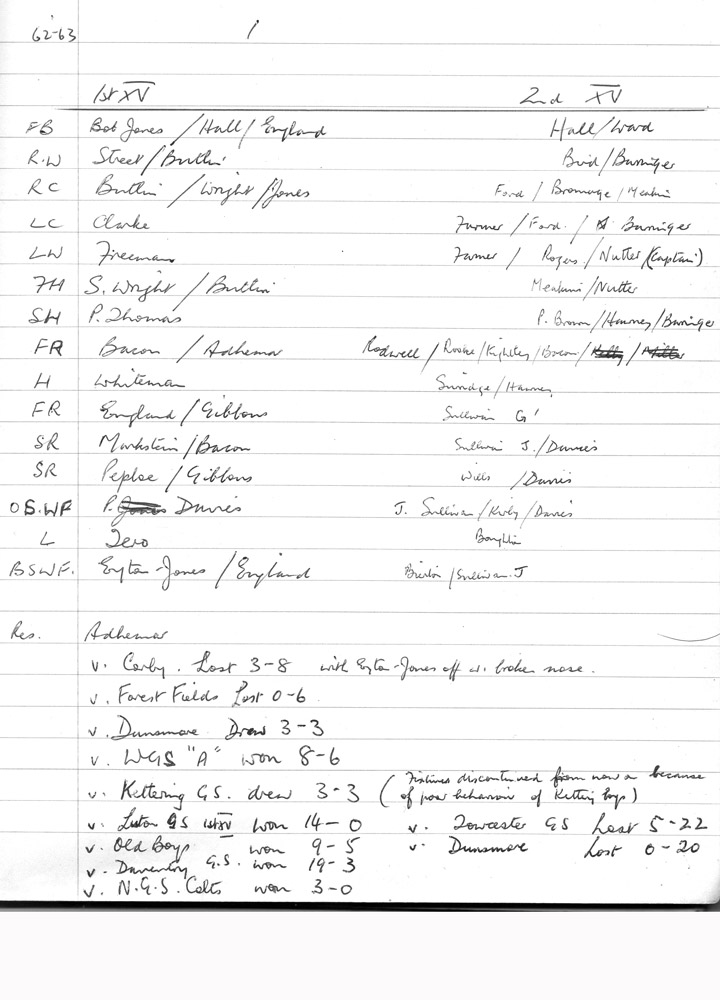 62-63 1
1st XV 2nd XV
FB Bob Jones / Hall / England Hall / Ward
R.W Street / Butlin Bird / Barringer
RC Butlin / Wright / Jones Ford / Bromage / Meakins
LC Clarke Farmer / Ford / Barringer
LW Freeman Farmer / Rogers / Nutter (Captain)
FH S. Wright / Butlin Meakins / Nutter
SH P. Thomas P. Brown / Hawnes / Barringer
FR Bacon / Adhemar Rodwell / Rooke / Kightley / Bacon /
H Whiteman Surridge / Hawnes
FR England / Gibbons Sullivan G
SR Markstein / Bacon Sullivan J. / Davies
SR Peploe / Gibbons Wills / Davies
OS.WF P. Jones Davies J. Sullivan / Kirby / Davies
L Zero Boughton
BSWF. Eyton-Jones / England / Sullivan. J
Res. Adhemar
v. Corby. Lost 3-8 with Eyton-Jones off w. broken nose.
v. Forest Fields Lost 0-6
v. Dunsmore Draw 3-3
v. WGS "A" won 8-6
v. Kettering G.S. drew 3-3 (Fixtures discontinued from now on because
of poor behavior of Kettering boys)
v. Luton GS 1st XV won 14-0 v. Towcester GS Lost 5-22
v. Old Boys won 9-5 v. Dunsmore Lost 0-20
v. Daventry G.S. won 19-3
v. N.G.S. Colts won 3-0